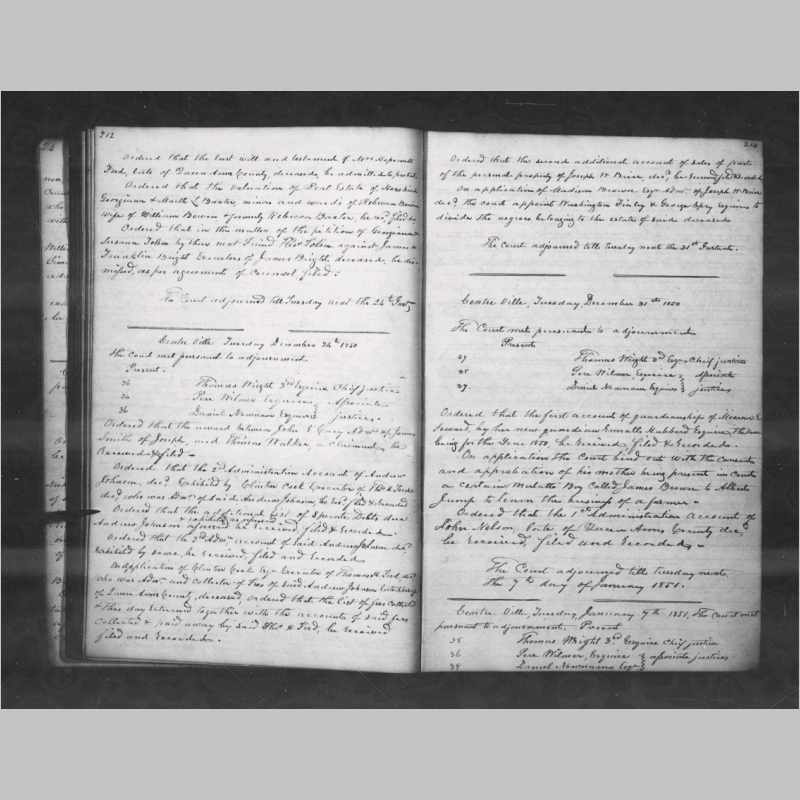 212
Ordered that the last will and testament of Mrs
Ford, late of Queen Anns County, deceased, be admitted to probate
Ordered that the valuation of Real Estate of
Georgianna & Baxter, minors and wards of Rebecca Bowen
wife of William Bowen formerly Rebecca Baxter, be recd filed &c
Ordered that in the matter of the petition of Georgianna &
Susanna Tolson by their next Friend Thos Tolson against James &
Franklin Bright Executors of James Bright, deceased, be dis-
missed, as per agreement of Counsel filed:
The Court adjourned till Tuesday next the 24th Inst
Centre Ville Tuesday December 24th 1850
The Court met pursuant to adjournment
Present.
36 Thomas Wright 3rd Esquire Chief Justice
36 Pere Wilmer Esquire } Associate
36 Daniel Newnam Esquire } justices
Ordered that the award between John Adm of James
Smith of Joseph, and Thomas Walker, a claimant, be
Received & filed
Ordered that the 2d Administration Account of Andrew
Johnson, decd Exhibited by Clinton Cook Executor of Thos Ford
decd who was Admr of said Andrew Johnson, be recd filed & recorded
Ordered that the additional list of Sperate Debts due
Andrew Johnson exhibited as aforesaid be received, filed & Recorded
Ordered that the 3d Admn account of said Andrew Johnson decd
Exhibited by same, be received, filed and recorded
On application of Clinton Cook Esqr Executor of Thomas Ford, decd
who was Adm and Collector of Fees of said Andrew Johnson
of Queen Anns County, deceased, ordered that the list of fees Collected
& this day returned together with the accounts of said fees
Collected & paid away by said Thos Ford, be received
filed and Recorded.
213
Ordered that the second additional account of sales of part
of the personal property of Joseph W Brice, decd, be
On application of Madison Brown Esqr Admr of Joseph W Brice
decd, the court appoint Washington Finley & George Spry Esquires to
divide the negroes belonging to the estate of said deceased
The Court adjourned till tuesday next the 31st Instant.
Centre Ville, Tuesday, December 31st 1850
The Court met pursuant to adjournment
Present
37 Thomas Wright 3rd Esqr Chief justice
35 Pere Wilmer Esquire } Associate
37. Daniel Newnam Esquire } justices
Ordered that the first account of guardianship of
Seward, by her new guardian Hubbard Esquire,
being for the year 1850, be received filed & Recorded.
On application the Court bind out with the consent
and approbation of his mother being present in Court
a certain Mulatto Boy Called James Brown to Albert
Jump to learn the business of a farmer.
Ordered that the 1st Administration Account of
John Nelson, late of Queen Anns County decd
be received, filed and recorded
The Court adjourned till tuesday next,
the 7th day of January 1851.
Centre Ville, Tuesday, January 7th 1851, The Court met
pursuant to adjournment. Present
38 Thomas Wright 3rd Esquire Chief justice
36 Pere Wilmer, Esquire } associate justices
38 Daniel Newnam Esqr }